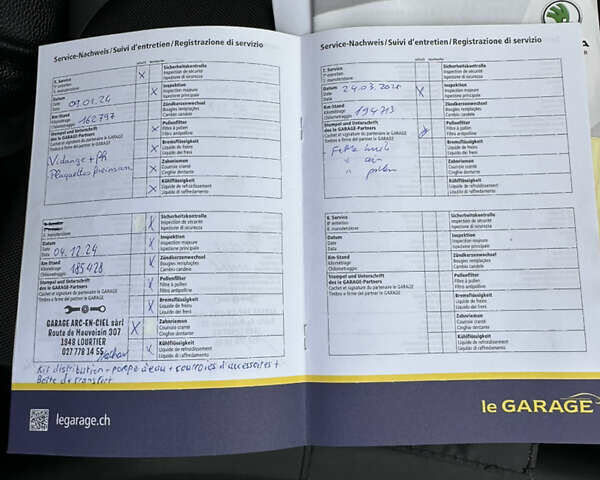 Service-Nachweis/Suivi d'entretien/Registrazione di servizio
Sicherheitskontrolle
Inspection de sécurité
Ispezione di sicurezza
5. Service
5e entretien
5. manutenzione
Inspektion
Inspection majeure
Ispezione principale
Datum
Date
Data
09.01.24
Zündkerzenwechsel
Bougies remplacées
Cambio candele
Km-Stand
Kilométrage
Chilometraggio
160797
Pollenfilter
Filtre à pollen
Filtro antipolline
Stempel und Unterschrift
des le GARAGE-Partners
Cachet et signature du partenaire le GARAGE
Timbro e firma del partner le GARAGE
Bremsflüssigkeit
Liquide de freins
Liquido dei freni
Vidange + Ph
Plaquettes frein av
Zahnriemen
Courroie cranté
Cinghie dentate
Kühlflüssigkeit
Liquide de refroidissement
Liquido di raffreddamento
Sicherheitskontrolle
Inspection de sécurité
Ispezione di sicurezza
6. manutenzione
Inspektion
Inspection majeure
Ispezione principale
Datum
Date
Data
04.12.24
Zündkerzenwechsel
Bougies remplacées
Cambio candele
Km-Stand
Kilométrage
Chilometraggio
185428
Pollenfilter
Filtre à pollen
Filtro antipolline
Stempel und Unterschrift
des le GARAGE-Partners
Cachet et signature du partenaire le GARAGE
Timbro e firma del partner le GARAGE
Bremsflüssigkeit
Liquide de freins
Liquido dei freni
GARAGE ARC-EN-CIEL sàrl
Route de Mauvoisin 307
1948 LOURTIER
027 778 14 55
Zahnriemen
Courroie cranté
Cinghie dentate
Kühlflüssigkeit
Liquide de refroidissement
Liquido di raffreddamento
Kit distribution + pompe d'eau + courroies d'accessoires +
Boîte de transfert
legarage.ch
Service-Nachweis/Suivi d'entretien/Registrazione di servizio
Sicherheitskontrolle
Inspection de sécurité
Ispezione di sicurezza
7. Service
7e entretien
7. manutenzione
Inspektion
Inspection majeure
Ispezione principale
Datum
Date
Data
24.03.
Zündkerzenwechsel
Bougies remplacées
Cambio candele
Km-Stand
Kilométrage
Chilometraggio
194713
Pollenfilter
Filtre à pollen
Filtro antipolline
Stempel und Unterschrift
des le GARAGE-Partners
Cachet et signature du partenaire le GARAGE
Timbro e firma del partner le GARAGE
Bremsflüssigkeit
Liquide de freins
Liquido dei freni
Zahnriemen
Courroie cranté
Cinghie dentate
Kühlflüssigkeit
Liquide de refroidissement
Liquido di raffreddamento
Sicherheitskontrolle
Inspection de sécurité
Ispezione di sicurezza
8. Service
8e entretien
8. manutenzione
Inspektion
Inspection majeure
Ispezione principale
Datum
Date
Data
Zündkerzenwechsel
Bougies remplacées
Cambio candele
Km-Stand
Kilométrage
Chilometraggio
Pollenfilter
Filtre à pollen
Filtro antipolline
Stempel und Unterschrift
des le GARAGE-Partners
Cachet et signature du partenaire le GARAGE
Timbro e firma del partner le GARAGE
Bremsflüssigkeit
Liquide de freins
Liquido dei freni
Zahnriemen
Courroie cranté
Cinghie dentate
Kühlflüssigkeit
Liquide de refroidissement
Liquido di raffreddamento
le GARAGE